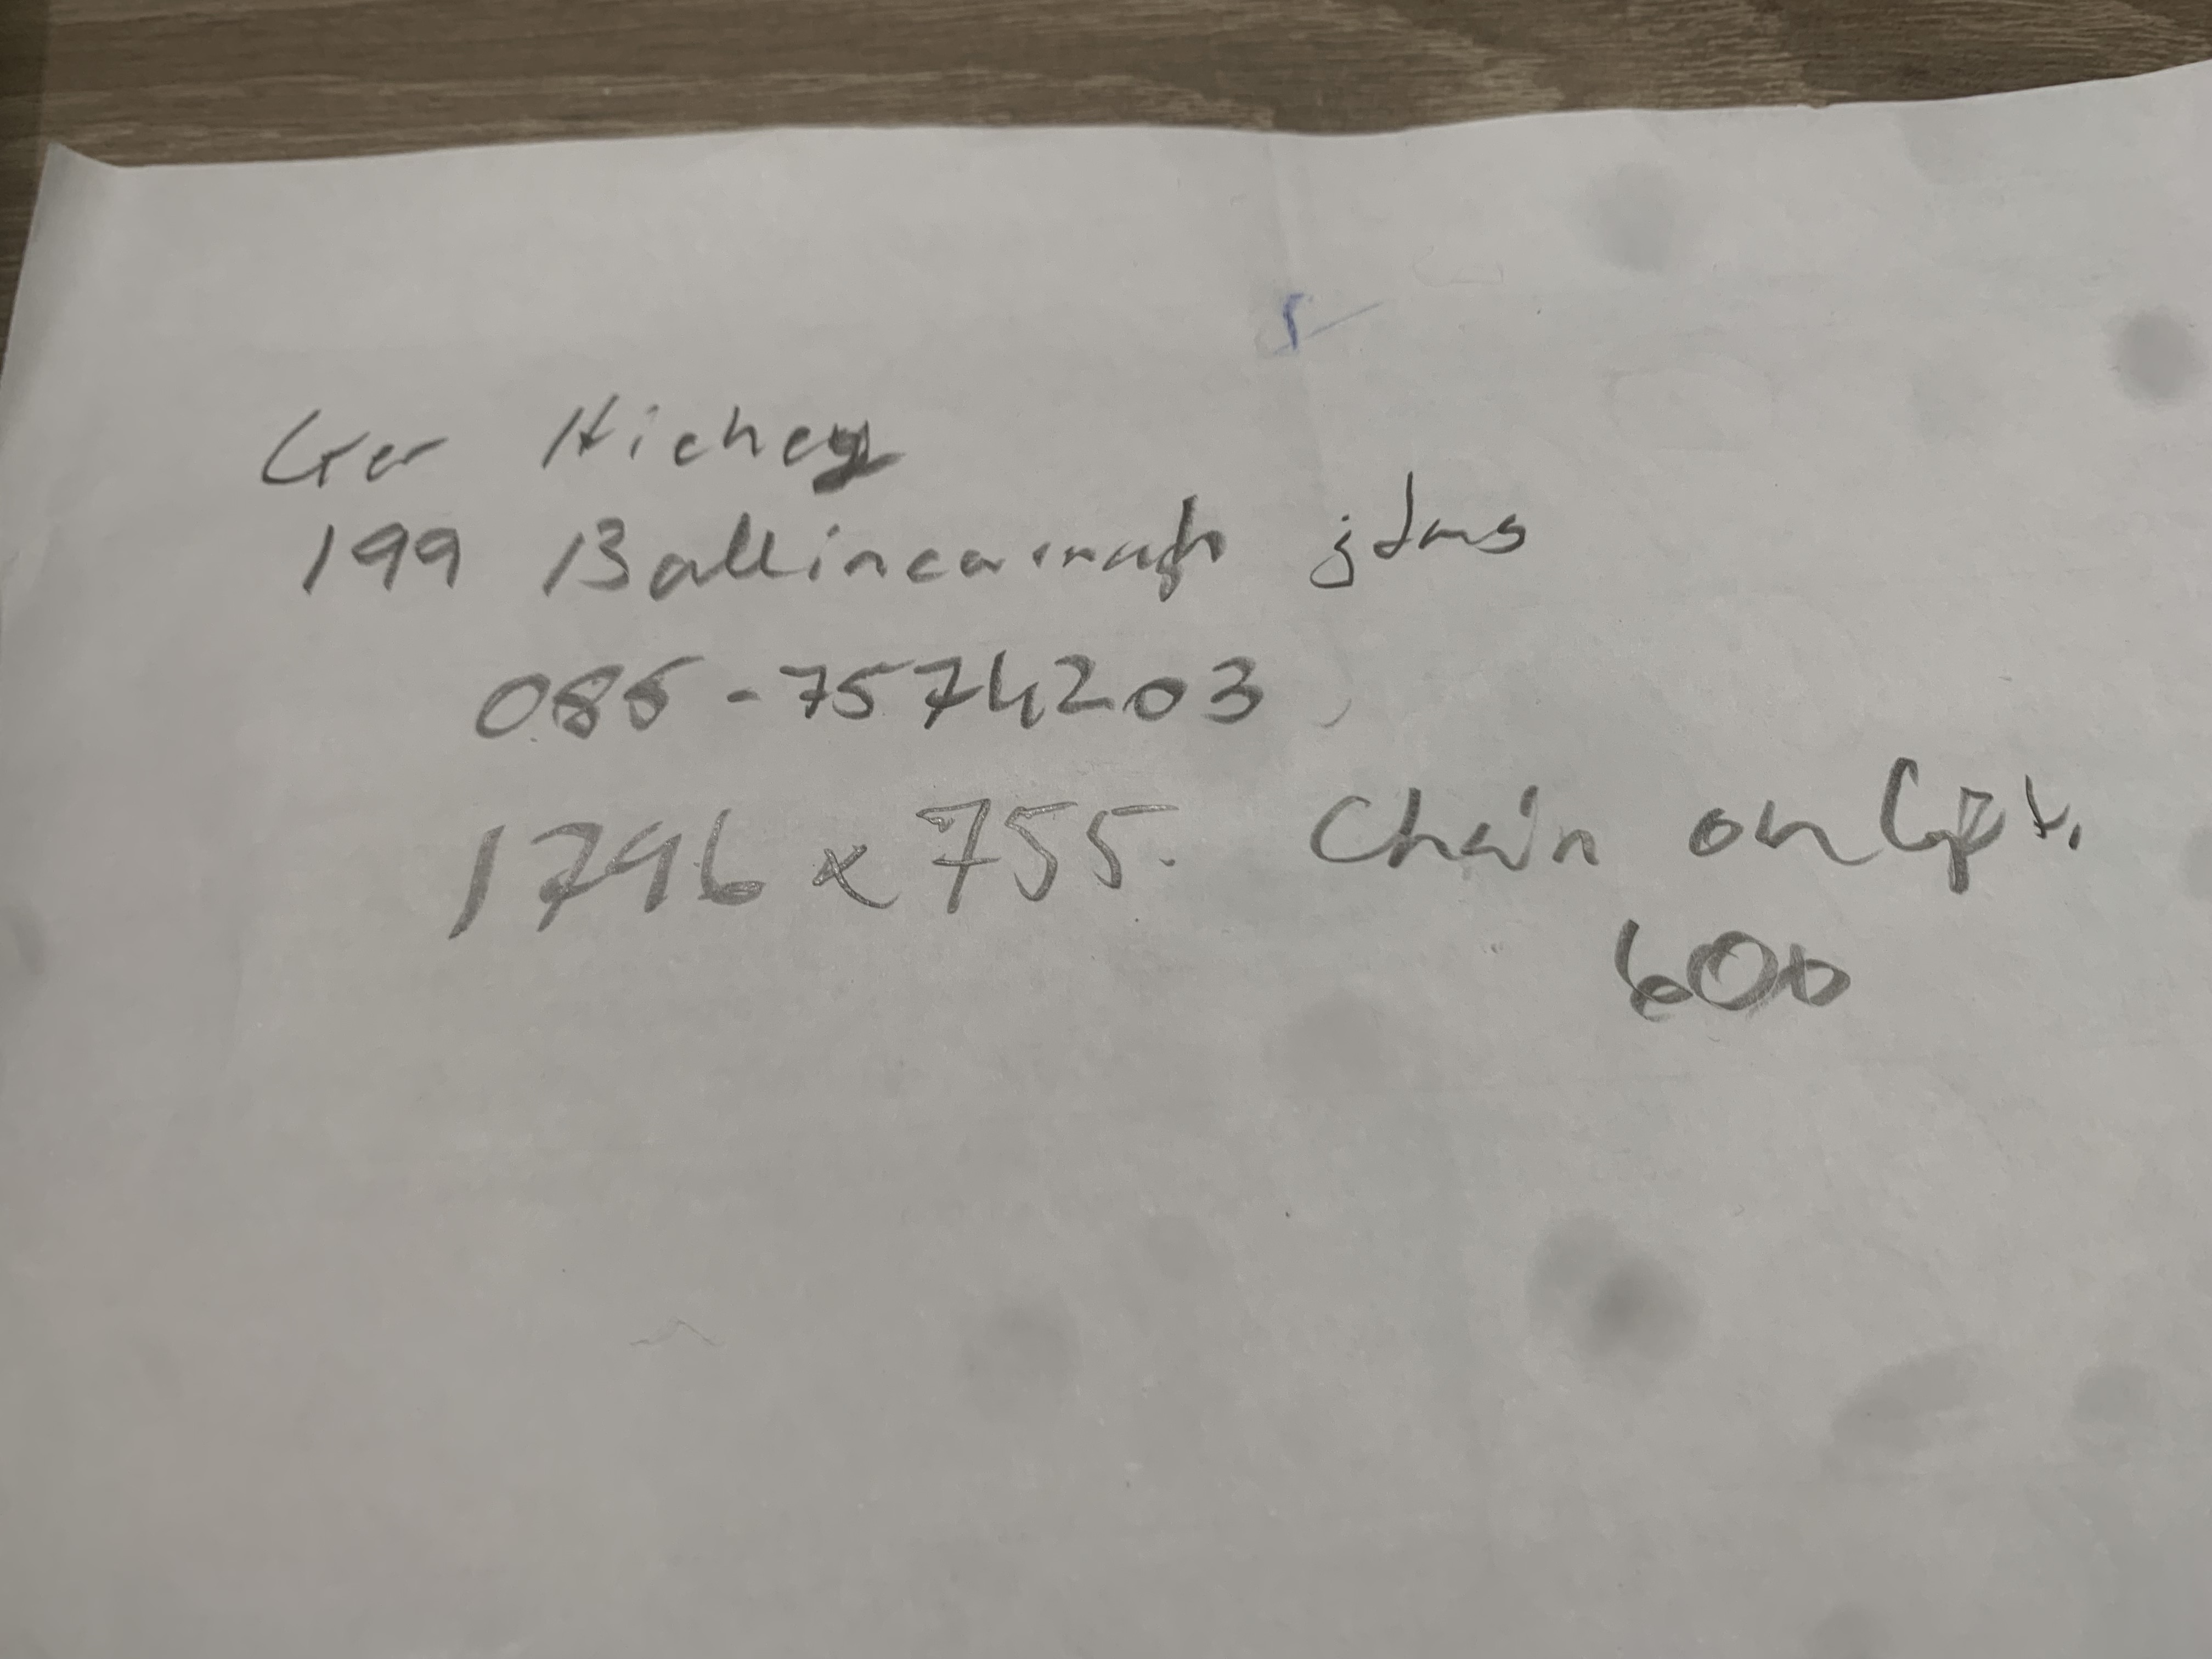 Ger Hickey
199 Ballincarnagh gdns
085-7574203
1796 x 755. Chain on left.
600